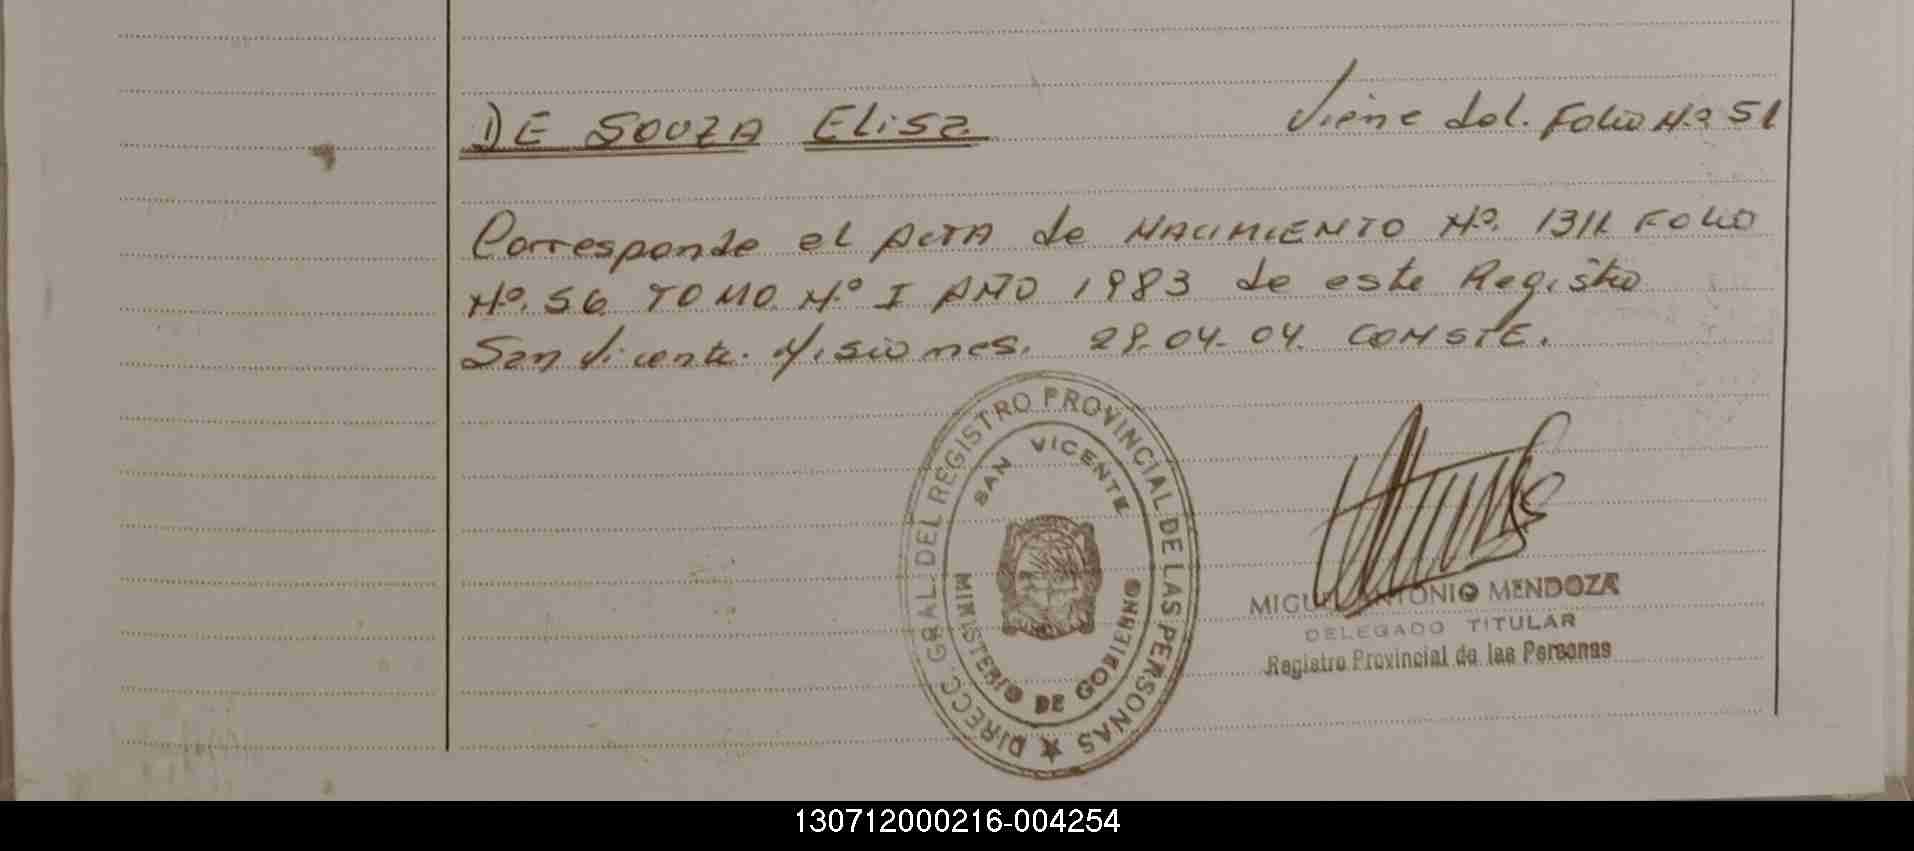 DE SOUZA Elisa
Viene del. Folio N.º 51
Corresponde el ACTA de NACIMIENTO Nº. 1311 FOLIO
Nº. 56 TOMO N.º I AÑO 1983 de este Registro
San Vicente. Misiones. 28-04-04. CONSTE.
DIRECC. GRAL. DEL REGISTRO PROVINCIAL DE LAS PERSONAS
SAN VICENTE
MINISTERIO DE GOBIERNO
MIGUEL ANTONIO MENDOZA
DELEGADO TITULAR
Registro Provincial de las Personas
130712000216-004254